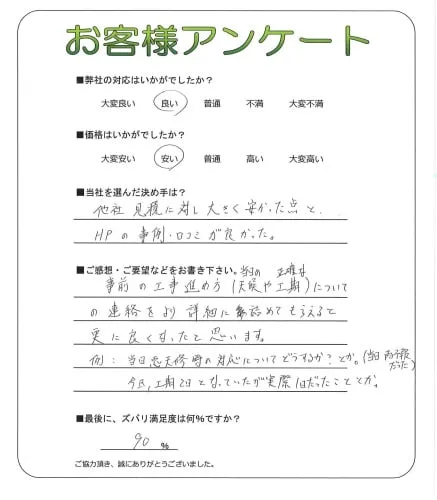 お客様アンケート
■弊社の対応はいかがでしたか?
大変良い 良い 普通 不満 大変不満
■価格はいかがでしたか?
大変安い 安い 普通 高い 大変高い
■当社を選んだ決め手は?
他社見積に対し大きく安かった点と、
HPの事例・口コミが良かった。
■ご感想・ご要望などをお書き下さい。
当日の 正確な
事前の工事進め方(天候や工期)について
の連絡をより詳細に詰めてもらえると
更に良くなったと思います。
例:当日悪天候時の対応についてどうするか?とか。(当日雨予報だった)
今回、工期2日となっていたが実際1日だったこととか。
■最後に、ズバリ満足度は何%ですか?
90 %
ご協力頂き、誠にありがとうございました。